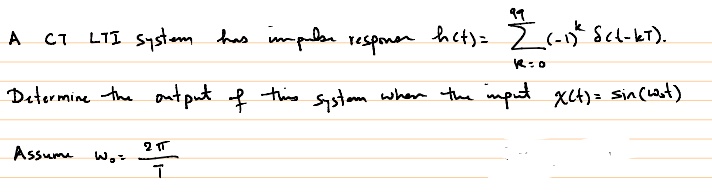 A CT LTI system has impulse response h(t) = \sum_{k=0}^{99} (-1)^k δ(t-kT).
Determine the output of this system when the input x(t) = sin(ω₀t)
Assume ω₀ = \frac{2π}{T}